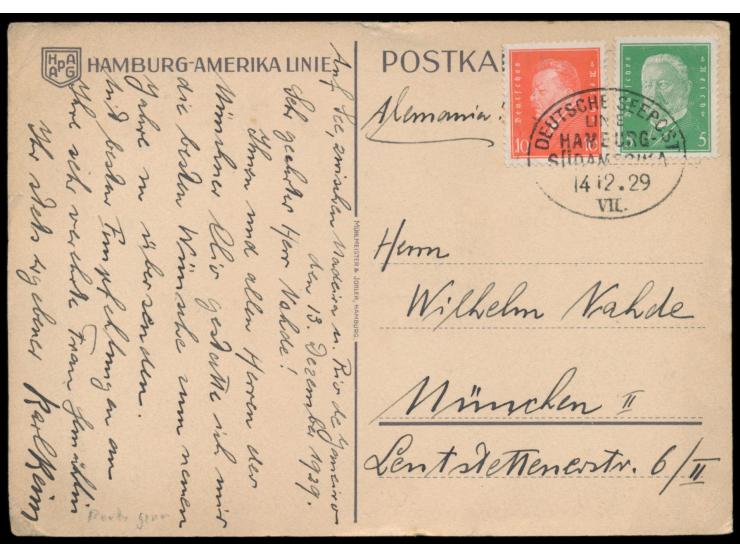 HAPAG
HAMBURG-AMERIKA LINIE
Auf See, zwischen Madeira u. Rio de Janeiro
den 13 Dezember 1929.
Sehr geehrter Herr Nahde!
Ihnen und allen Herren der
Münchner gestatte ich mir
die besten Wünsche zum neuen
Jahre zu übersenden.
Mit besten Empfehlungen an
Ihre sehr verehrte Frau Gemahlin
Ihr stets ergebner Karl
MÜHLMEISTER & JOHLER, HAMBURG
POSTKA
Alemania
Deutsches Reich
10
Deutsches Reich
5
DEUTSCHE SEEPOST
LINIE
HAMBURG-
SÜDAMERIKA
14 12.29
VII.
Herrn
Wilhelm Nahde
München II
Leutstettenerstr. 6/II